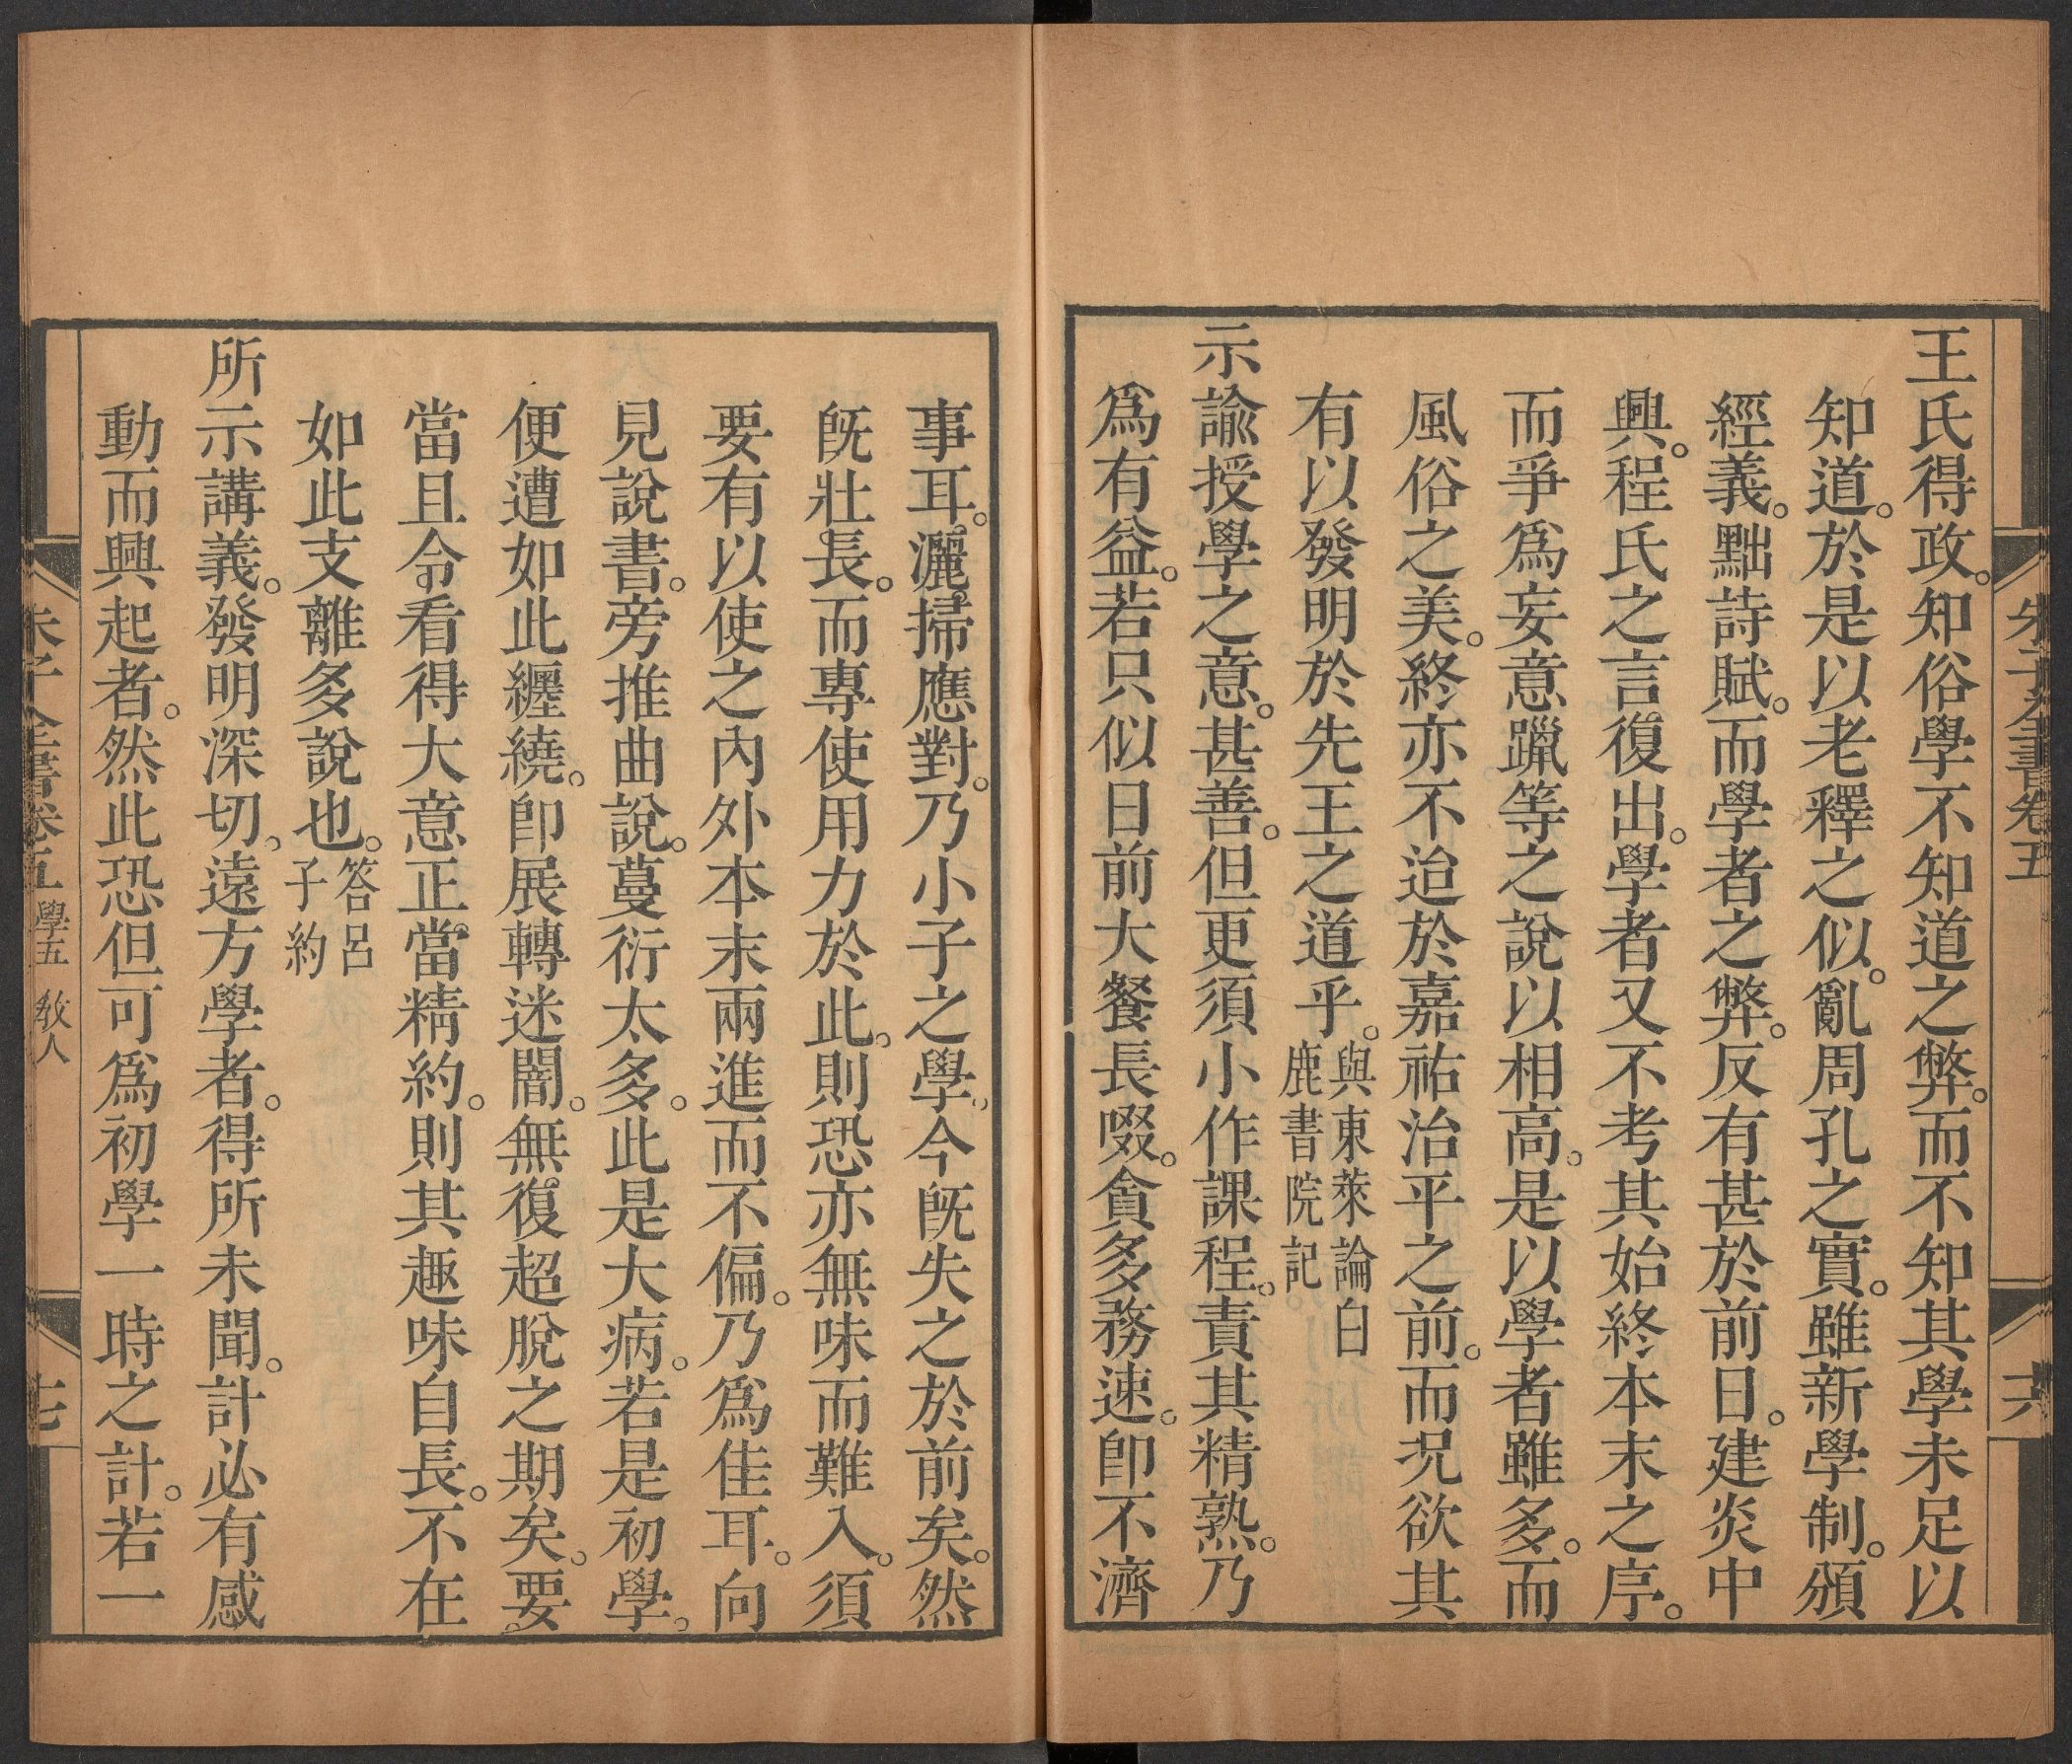 朱子全書卷五
六
王氏得政。知俗學不知道之弊。而不知其學未足以
知道。於是以老釋之似。亂周孔之實。雖新學制。頒
經義。黜詩賦。而學者之弊。反有甚於前日。建炎中
興。程氏之言復出。學者又不考其始終本末之序。
而爭爲妄意躐等之說以相高。是以學者雖多。而
風俗之美。終亦不迨於嘉祐治平之前。而況欲其
有以發明於先王之道乎。與東萊論白鹿書院記
示諭授學之意。甚善。但更須小作課程。責其精熟。乃
爲有益。若只似日前大餐長啜。貪多務速。卽不濟
事耳。灑掃應對。乃小子之學。今旣失之於前矣。然
旣壯長。而專使用力於此。則恐亦無味而難入。須
要有以使之內外本末兩進而不偏。乃爲佳耳。向
見說書。旁推曲說。蔓衍太多。此是大病。若是初學。
便遭如此纏繞。卽展轉迷闇。無復超脫之期矣。要
當且令看得大意正當精約。則其趣味自長。不在
如此支離多說也。答呂子約
所示講義。發明深切。遠方學者。得所未聞。計必有感
動而興起者。然此恐但可爲初學一時之計。若一
朱子全書卷五 學五 敎人
七